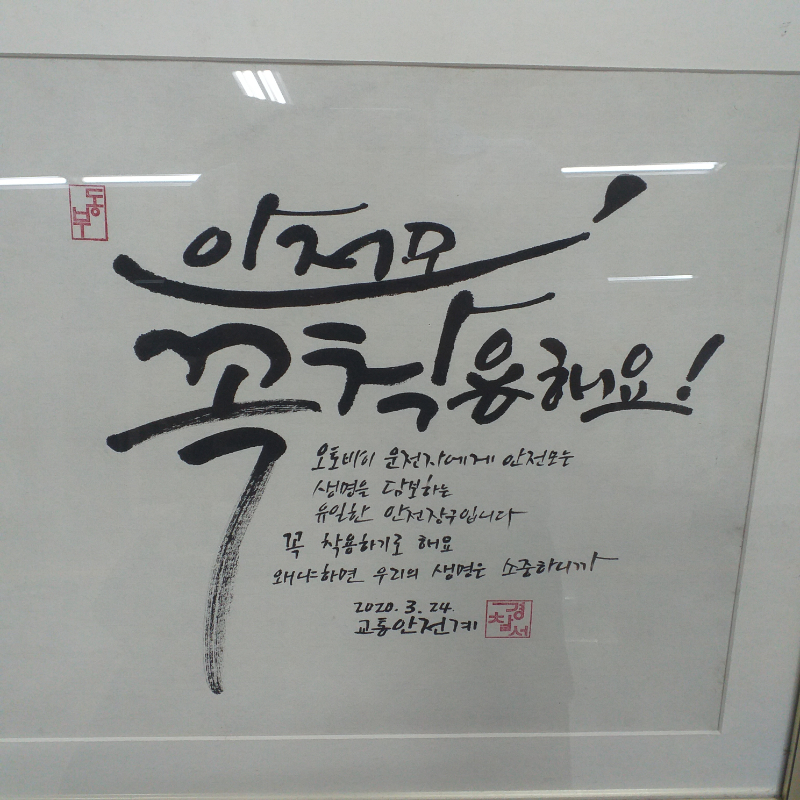 동부
안전모
꼭 착용해요!
오토바이 운전자에게 안전모는
생명을 담보하는
유일한 안전장구입니다
꼭 착용하기로 해요
왜냐하면 우리의 생명은 소중하니까
2020. 3. 24.
교통안전계
경찰서